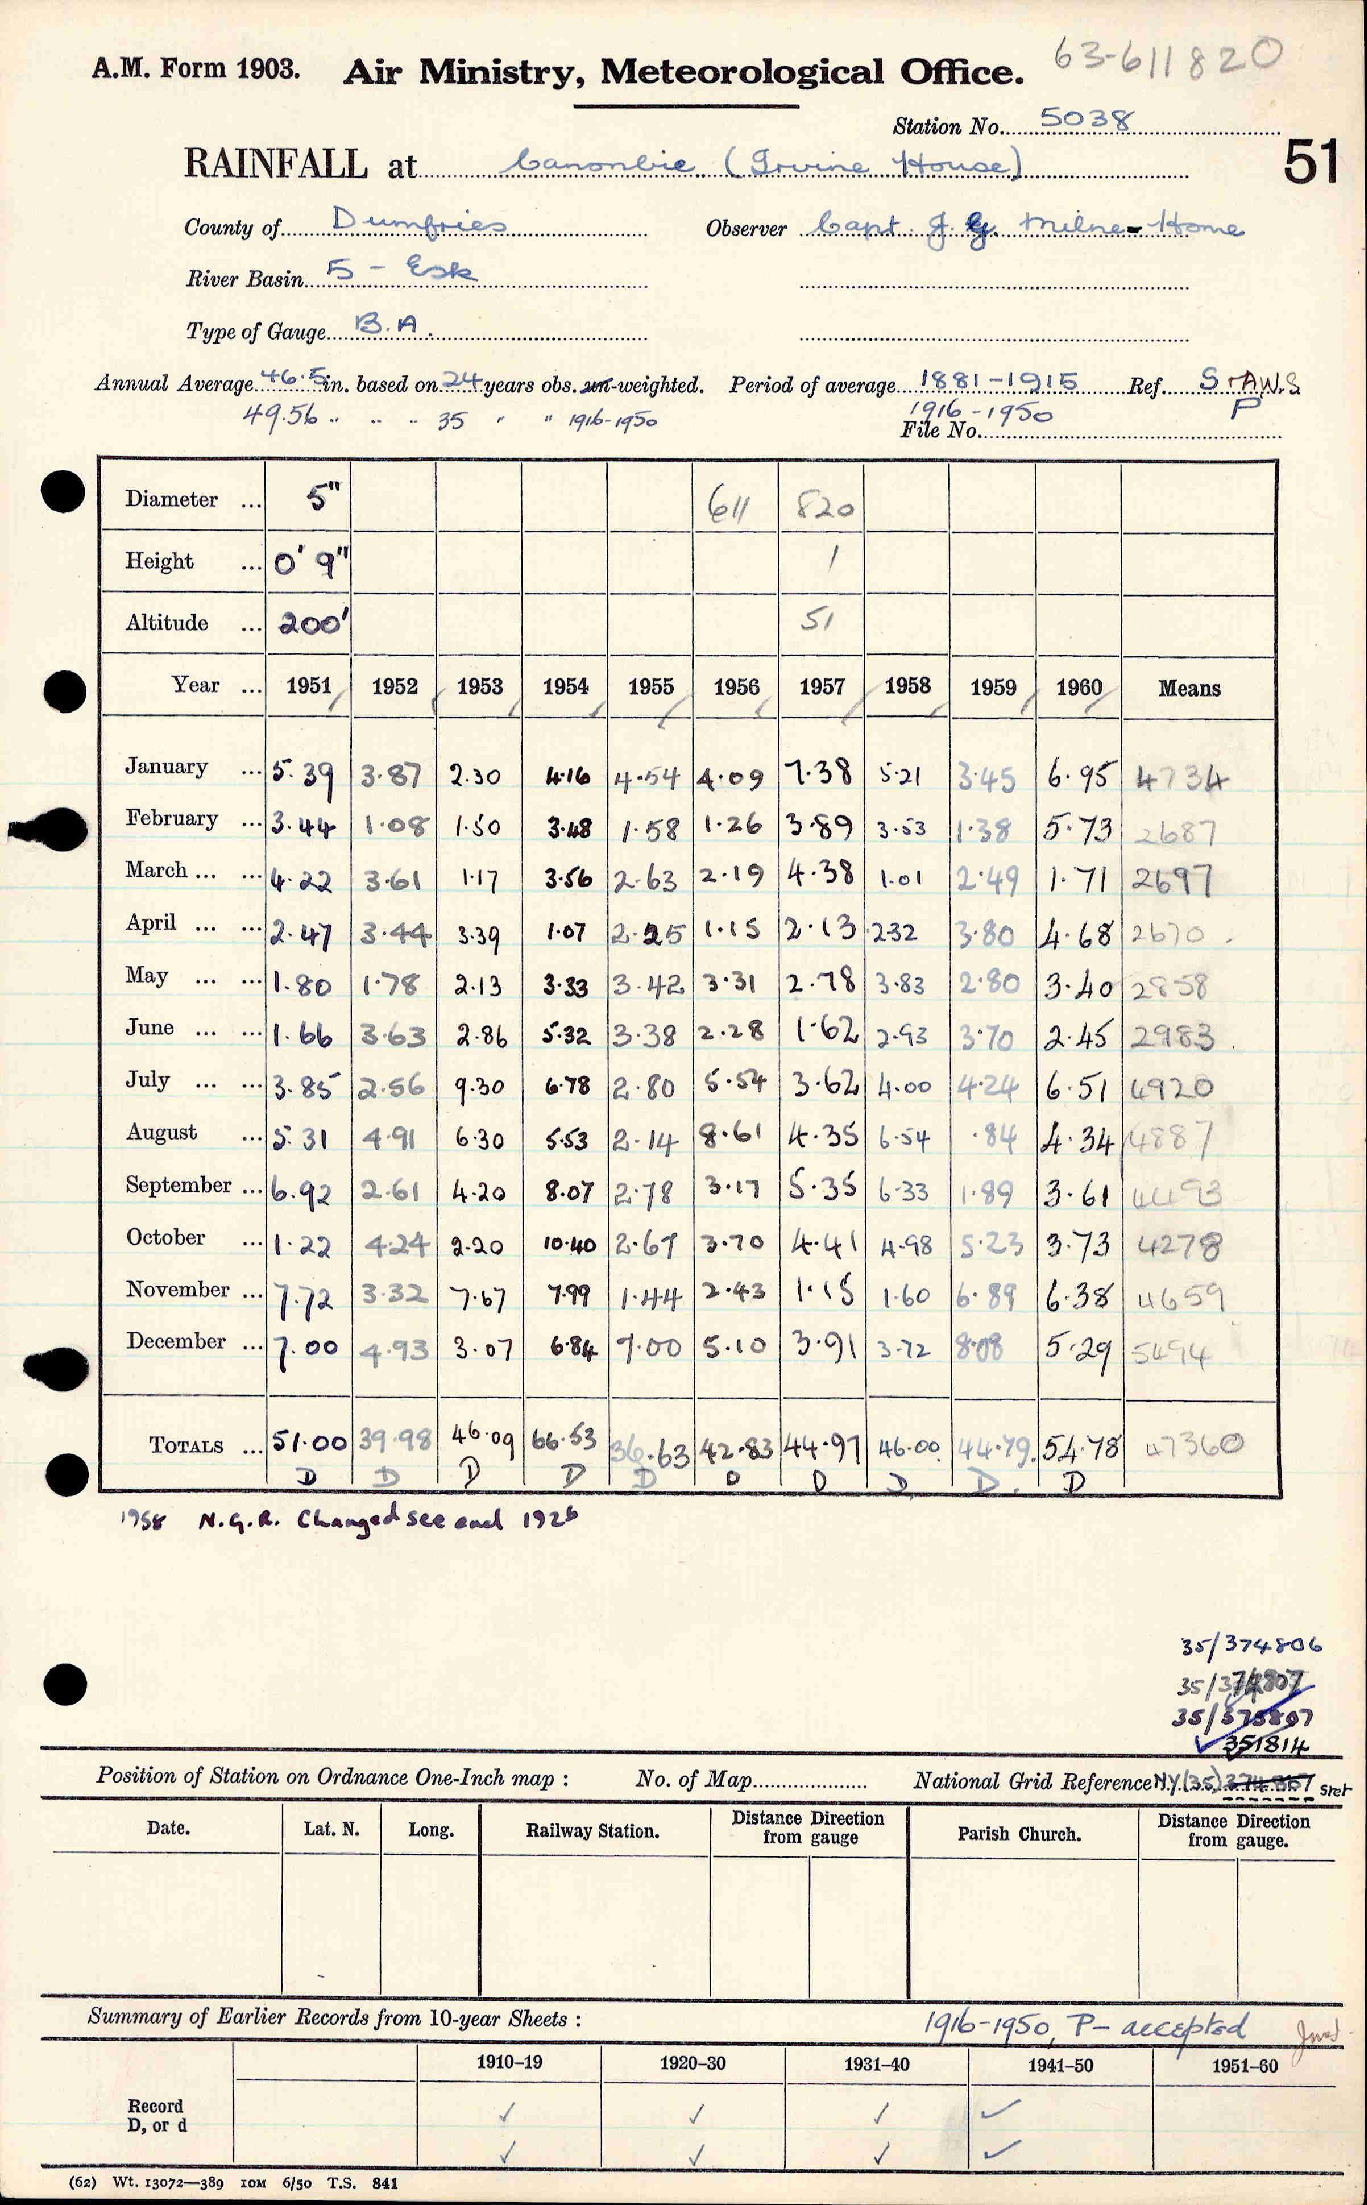 63-611820
A.M. Form 1903. Air Ministry, Meteorological Office.
Station No. 5038
RAINFALL at Canonbie (Irvine House) 51
County of Dumfries Observer Capt. J G. Milne-Home
River Basin 5 - Esk
Type of Gauge B.A.
Annual Average 46.5 in. based on 24 years obs. un-weighted. Period of average 1881-1915 Ref. S+A.W.S
49.56 " " " 35 " " 1916-1950 1916-1950 P
File No.
Diameter ... 5" 611 820
Height ... 0' 9" 1
Altitude ... 200' 51
Year ... 1951 1952 1953 1954 1955 1956 1957 1958 1959 1960 Means
January ... 5.39 3.87 2.30 4.16 4.54 4.09 7.38 5.21 3.45 6.95 4734
February ... 3.44 1.08 1.50 3.48 1.58 1.26 3.89 3.53 1.38 5.73 2687
March ... ... 4.22 3.61 1.17 3.56 2.63 2.19 4.38 1.01 2.49 1.71 2697
April ... ... 2.47 3.44 3.39 1.07 2.25 1.15 2.13 2.32 3.80 4.68 2670
May ... ... 1.80 1.78 2.13 3.33 3.42 3.31 2.78 3.83 2.80 3.40 2858
June ... ... 1.66 3.63 2.86 5.32 3.38 2.28 1.62 2.93 3.70 2.45 2983
July ... ... 3.85 2.56 9.30 6.78 2.80 5.54 3.62 4.00 4.24 6.51 4920
August ... 5.31 4.91 6.30 5.53 2.14 8.61 4.35 6.54 .84 4.34 4887
September ... 6.92 2.61 4.20 8.07 2.78 3.17 5.35 6.33 1.89 3.61 4493
October ... 1.22 4.24 2.20 10.40 2.67 3.70 4.41 4.98 5.23 3.73 4278
November ... 7.72 3.32 7.67 7.99 1.44 2.43 1.15 1.60 6.89 6.38 4659
December ... 7.00 4.93 3.07 6.84 7.00 5.10 3.91 3.72 8.08 5.29 5494
TOTALS ... 51.00 39.98 46.09 66.53 36.63 42.83 44.97 46.00 44.79 54.78 47360
D D D D D D D D D. D
1958 N.G.R. Changed see end 1926
35/374806
35/374807
35/375807
351814
Position of Station on Ordnance One-Inch map : No. of Map National Grid Reference NY(35) 374807 stet
Date. Lat. N. Long. Railway Station. Distance from gauge Direction Parish Church. Distance from gauge. Direction
Summary of Earlier Records from 10-year Sheets : 1916-1950, P- accepted
1910-19 1920-30 1931-40 1941-50 1951-60
Record ✓ ✓ ✓ ✓
D, or d ✓ ✓ ✓ ✓
(62) Wt. 13072—389 10M 6/50 T.S. 841